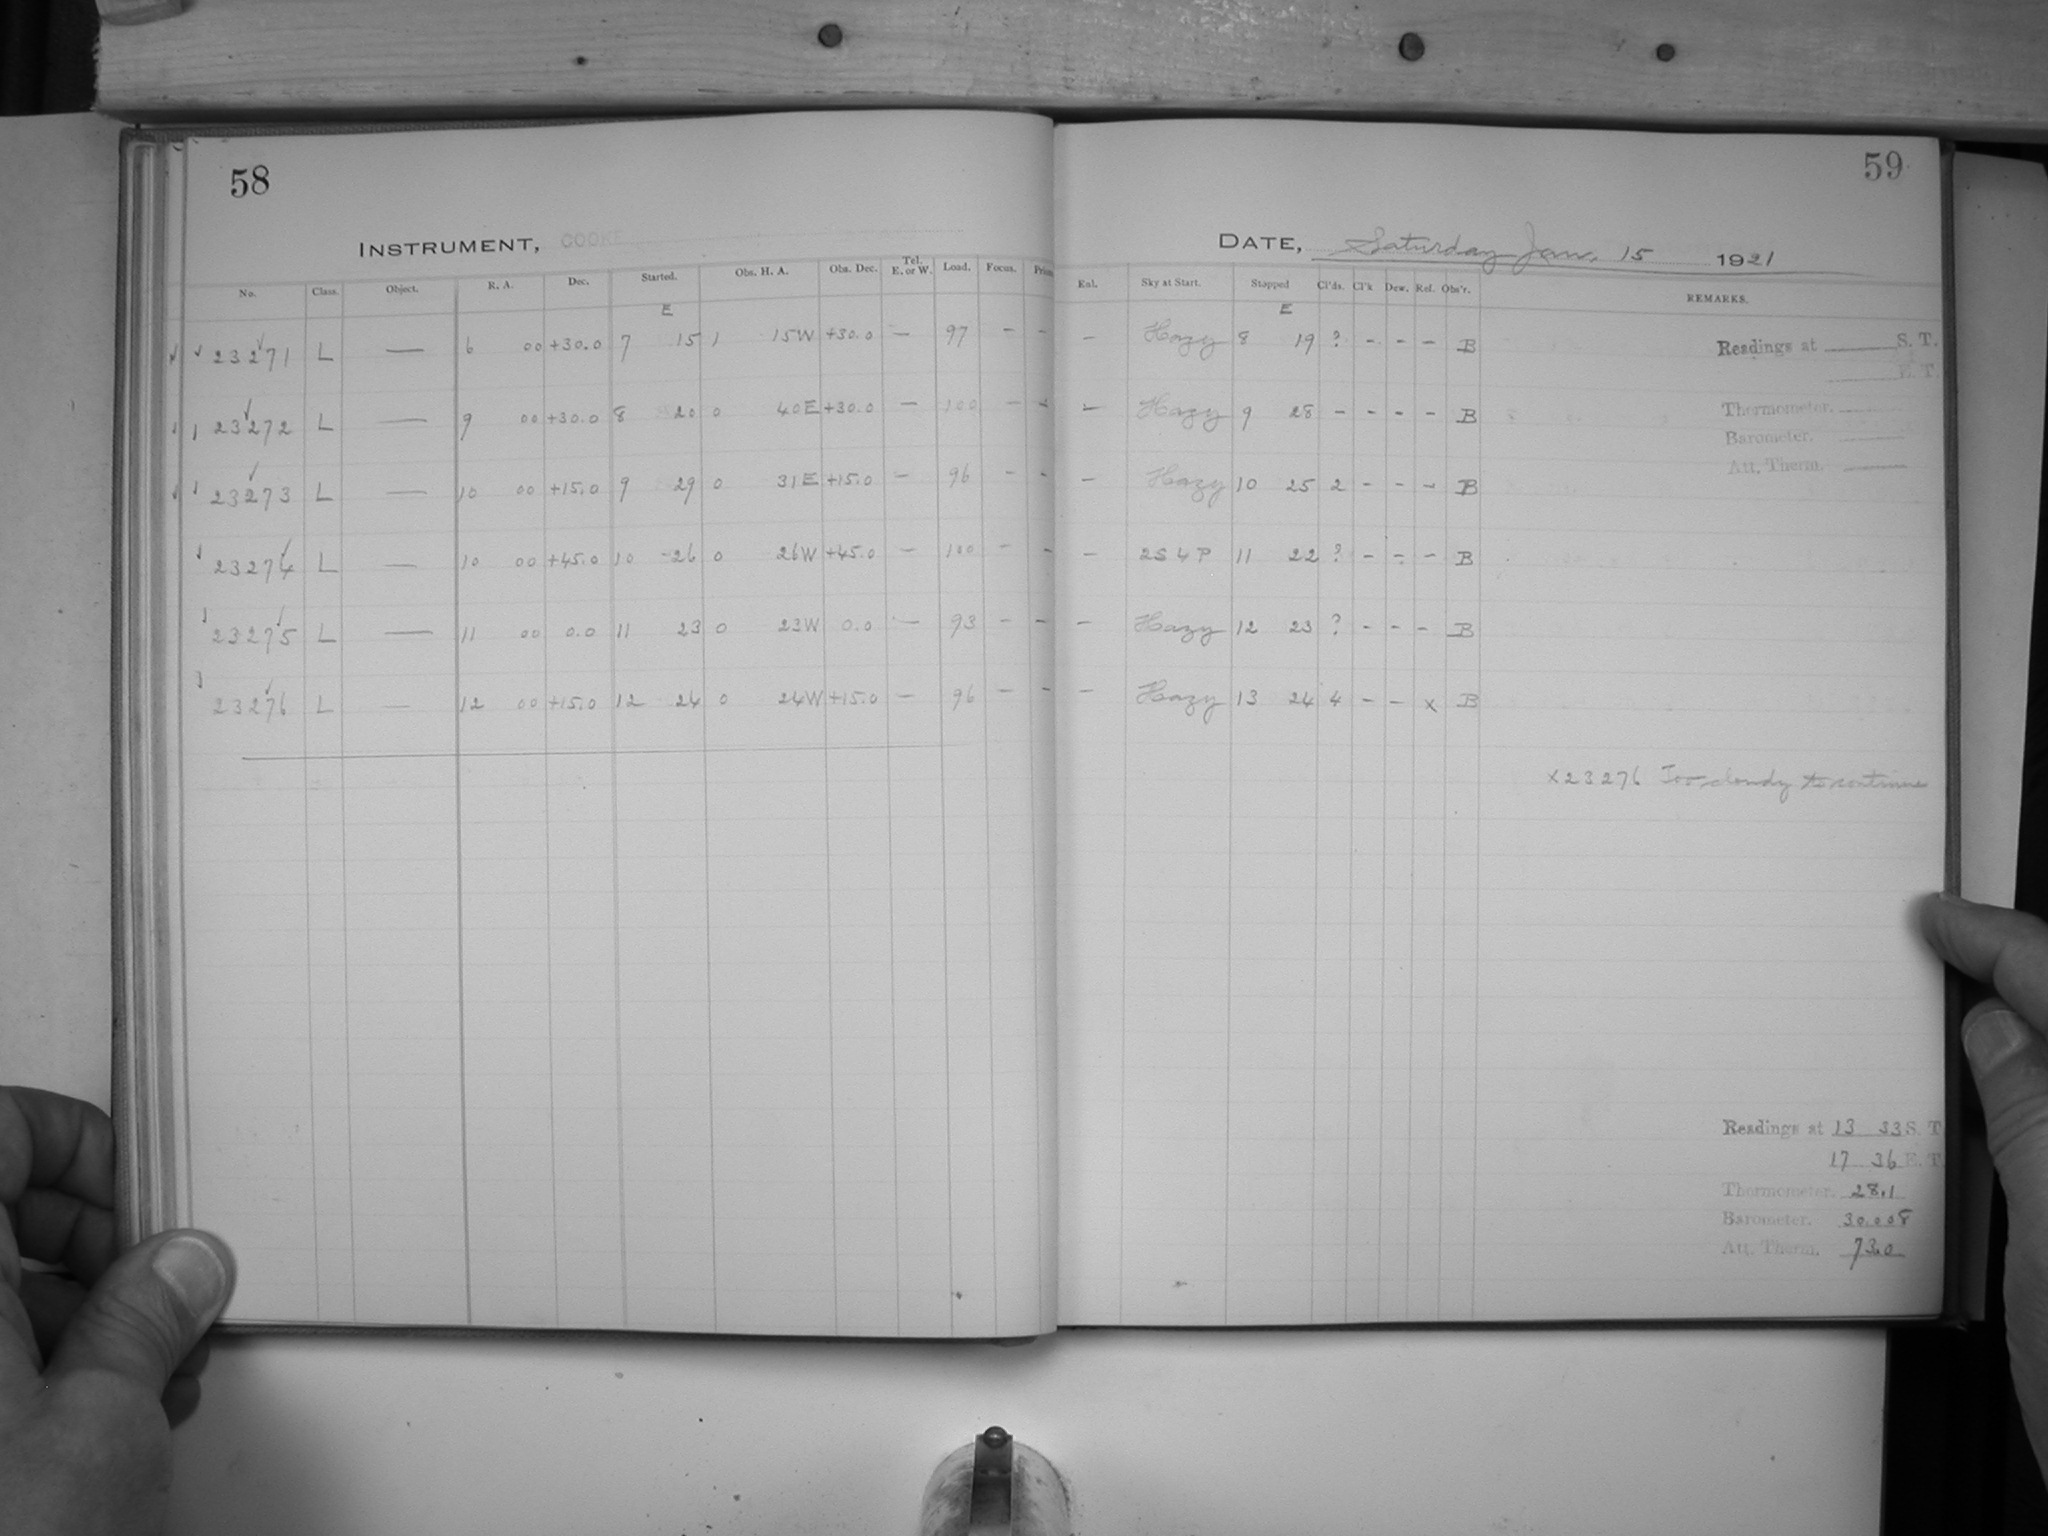 58
INSTRUMENT, COOKE
No. Class. Object. R. A. Dec. Started. Obs. H. A. Obs. Dec. Tel. E. or W. Load. Focus.
E
23271 L — 6 00 +30.0 7 15 1 15W +30.0 — 97 — —
23272 L — 9 00 +30.0 8 20 0 40E +30.0 — 100 — —
23273 L — 10 00 +15.0 9 29 0 31E +15.0 — 96 — —
23274 L — 10 00 +45.0 10 26 0 26W +45.0 — 100 — —
23275 L — 11 00 0.0 11 23 0 23W 0.0 — 93 — —
23276 L — 12 00 +15.0 12 24 0 24W +15.0 — 96 — —
59
DATE, Saturday Jan. 15 1921
Enl. Sky at Start. Stopped Cl'ds. Cl'k Dew. Ref. Obs'r. REMARKS.
E
— Hazy 8 19 ? — — — B
— Hazy 9 28 — — — — B
— Hazy 10 25 2 — — — B
— 2S 4 P 11 22 ? — — — B
— Hazy 12 23 ? — — — B
— Hazy 13 24 4 — — x B
Readings at S. T.
E. T.
Thermometer.
Barometer.
Att. Therm.
x23276 Too cloudy to continue
Readings at 13 33 S. T.
17 36 E. T.
Thermometer. 28.1
Barometer. 30.008
Att. Therm. 73.0